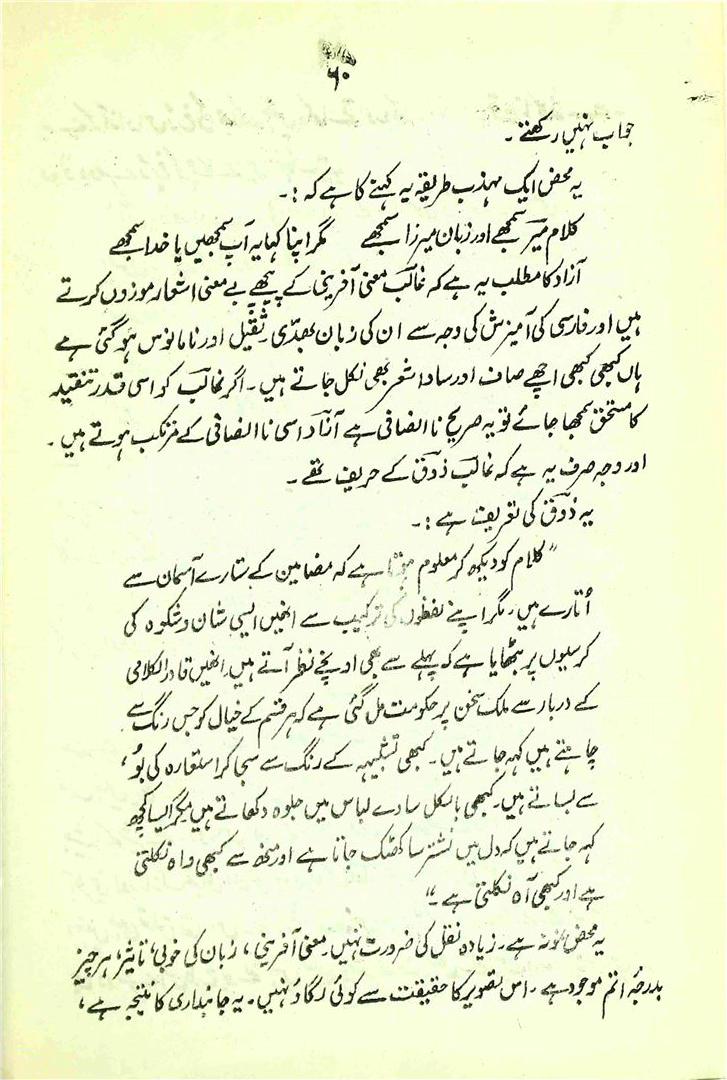 ۶۰
جواب نہیں رکھتے۔
یہ محض ایک مہذب طریقہ یہ کہنے کا ہے کہ :۔
کلام میرؔ سمجھے اور زبان میرزاؔ سمجھے مگر اپنا کہا یہ آپ سمجھیں یا خدا سمجھے
آزاد کا مطلب یہ ہے کہ غالبؔ معنی آفرینی کے پیچھے بے معنی اشعار موزوں کرتے
ہیں اور فارسی کی آمیزش کی وجہ سے ان کی زبان بھدّی۔ ثقیل اور نامانوس ہو گئی ہے
ہاں کبھی کبھی اچھے صاف اور سادا شعر بھی نکل جاتے ہیں۔ اگر غالبؔ کو اسی قدر تنقید
کا مستحق سمجھا جائے تو یہ صریح ناانصافی ہے آزاد اسی ناانصافی کے مرتکب ہوتے ہیں۔
اور وجہ صرف یہ ہے کہ غالبؔ ذوقؔ کے حریف تھے۔
یہ ذوقؔ کی تعریف ہے :۔
"کلام کو دیکھ کر معلوم ہوتا ہے کہ مضامین کے ستارے آسمان سے
اُتارے ہیں۔ مگر اپنے لفظوں کی ترکیب سے انھیں ایسی شان و شکوہ کی
کرسیوں پر بٹھایا ہے کہ پہلے سے بھی اونچے نظر آتے ہیں۔ انھیں قادرالکلامی
کے دربار سے ملک سخن پر حکومت مل گئی ہے کہ ہر قسم کے خیال کو جس رنگ سے
چاہتے ہیں کہہ جاتے ہیں۔ کبھی تشبیہہ کے رنگ سے سجا کر استعارہ کی بُو،
سے بساتے ہیں۔ کبھی بالکل سادے لباس میں جلوہ دکھاتے ہیں مگر ایسا کچھ
کہہ جاتے ہیں کہ دل میں نشتر سا کھٹک جاتا ہے اور منھ سے کبھی واہ نکلتی
ہے اور کبھی آہ نکلتی ہے۔"
یہ محض نمونہ ہے۔ زیادہ نقل کی ضرورت نہیں۔ معنی آفرینی، زبان کی خوبی، تاثیر، ہر چیز
بدرجۂ اتم موجود ہے۔ اس تصویر کا حقیقت سے کوئی لگاؤ نہیں۔ یہ جانبداری کا نتیجہ ہے،